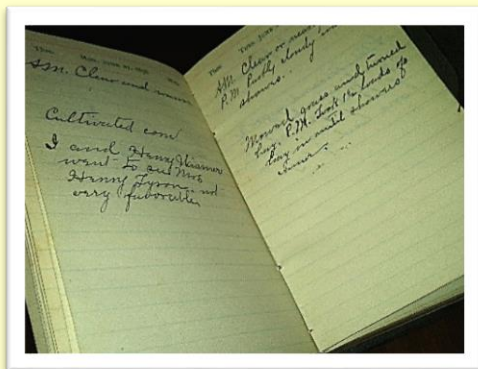 MON. JUNE 21,
AM. Clear and
Cultivated corn
I and Henry
went to see Mrs
Henry Tyson, not
very favorable,
TUES. JUNE
AM. Clear or
P.M. Partly cloudy
showers.
Mowed grass and turned
hay. P.M. Took loads of
hay in until showers
came.